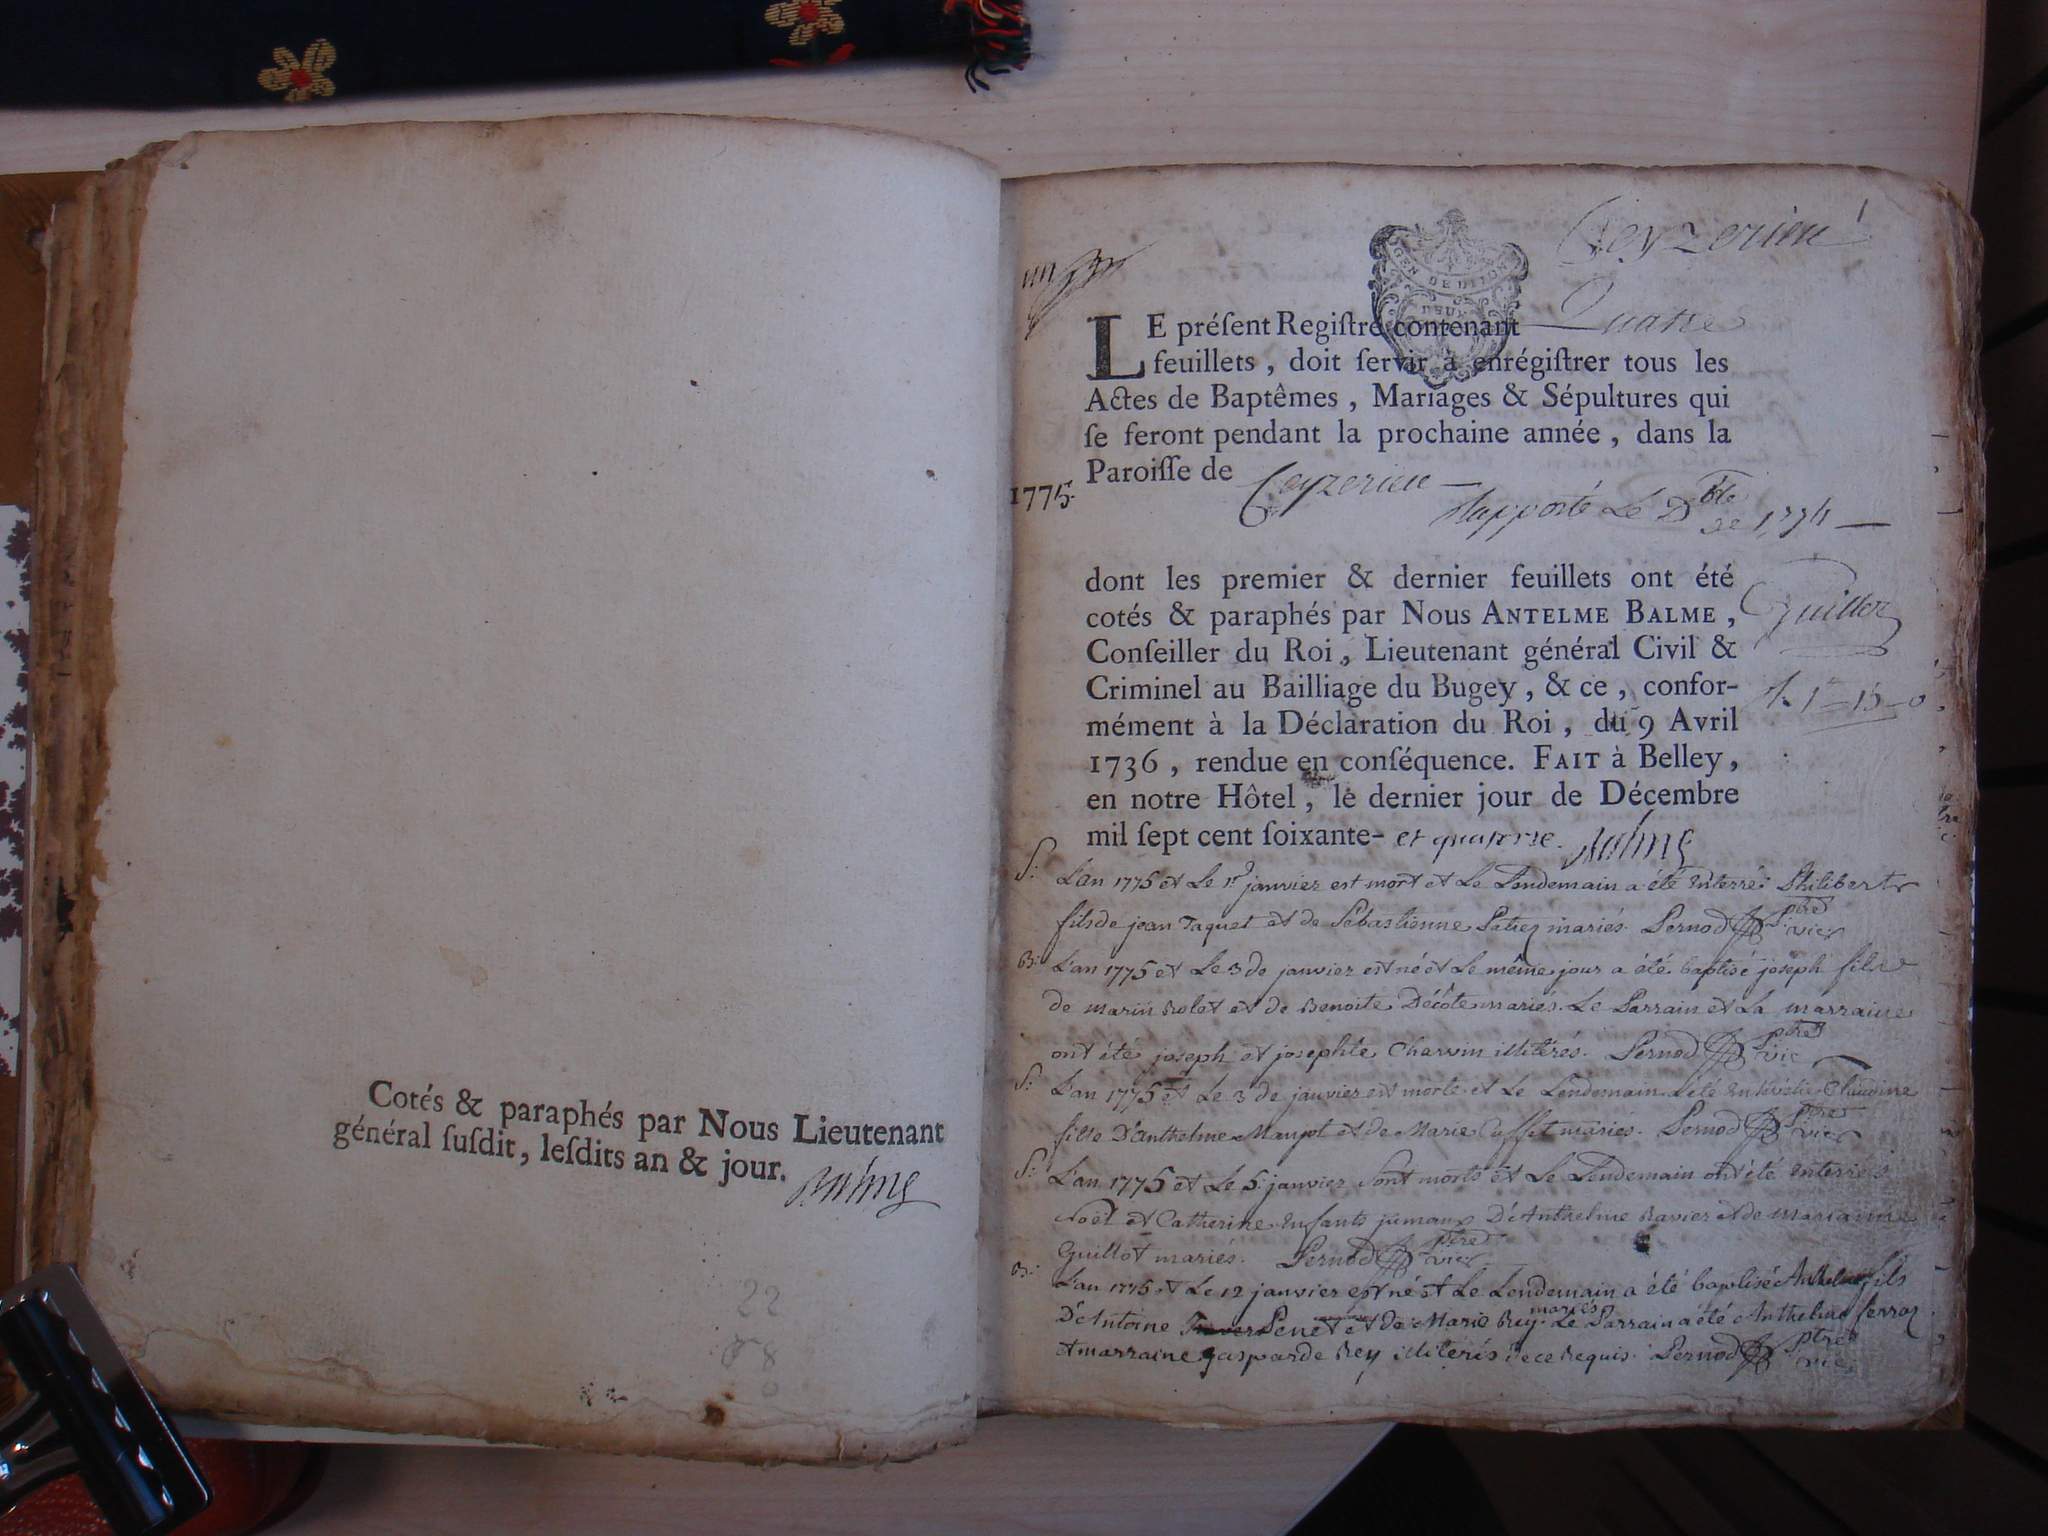 Cotés & paraphés par Nous Lieutenant
général ſuſdit, leſdits an & jour.
Balme
22
1
Ceyzerieu
un
GEN DE DIJON
DEUX
LE préſent Regiſtre contenant Quatre
feuillets, doit ſervir à enrégiſtrer tous les
Actes de Baptêmes, Mariages & Sépultures qui
ſe feront pendant la prochaine année, dans la
Paroiſſe de Ceyzerieu
1775.
Rapporté Le
de 1774
dont les premier & dernier feuillets ont été
cotés & paraphés par Nous ANTELME BALME,
Conſeiller du Roi, Lieutenant général Civil &
Criminel au Bailliage du Bugey, & ce, confor-
mément à la Déclaration du Roi, du 9 Avril
1736, rendue en conſéquence. FAIT à Belley,
en notre Hôtel, le dernier jour de Décembre
mil ſept cent ſoixante- et quatorze. Balme
S: L'an 1775 et Le 1r janvier est mort et Le Lendemain a été Enterré Philibert
fils de jean Taquet et de Sébastienne Patrez mariés. Pernod ptre vic
B: L'an 1775 et Le 3 de janvier est né et Le même jour a été baptisé joseph fils
de marin Rolet et de Benoite Décôte mariés. Le Parrain et La marraine
ont été joseph et josephte Charvin illitérés. Pernod ptre vic
S: L'an 1775 et Le 3 de janvier est morte et Le Lendemain a été Claudine
fille D'anthelme et de Marie mariés. Pernod ptre vic
S: L'an 1775 et Le 5 janvier Sont morts et Le Lendemain ont été Enterrés
Noël et Catherine Enfants jumaux D'Anthelme Ravier et de marianne
Guillot mariés. Pernod ptre vic
B: L'an 1775 et Le 12 janvier est né et Le Lendemain a été baptisé Anthelme fils
D'Antoine Penet et de Marie Rey mariés Le Parrain a été Anthelme
et marraine gasparde Rey illiterés de ce Requis. Pernod ptre vic